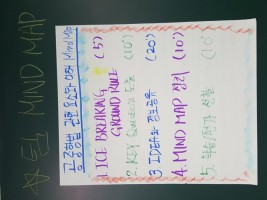 ☆ 팀 MIND MAP
공공한법 관련 요소와 이해 Mind Map
1. ICE BREAKING (5')
GROUND RULE
2. KEY Question 도출 (10')
3. IDEA와 정보공유 (20')
4. MIND MAP 정리 (10')
5. (10')